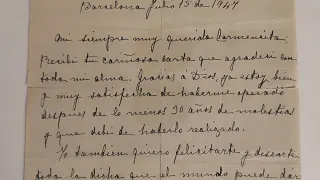 Barcelona Julio 15 de 1947
Mi siempre muy querida Carmensita.
Recibi tu cariñosa carta que agradeci con
toda mi alma. Gracias á Dios, ya estoy bien
y muy satisfecha de haberme operado
despues de lo menos 30 años de molestias
y que debi de haberlo realizado.
Yo tambien quiero felicitarte y desearte
toda la dicha que el mundo puede dar